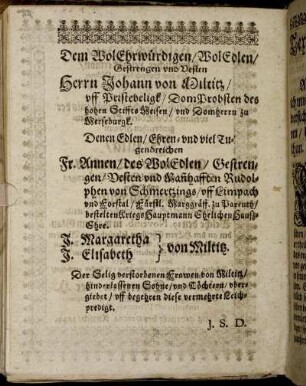 Dem WolEhrwürdigen/ WolEdlen/
Gestrengen vnd Vesten
Herrn Johann von Miltitz/
vff Pristebeligk/ DomProbsten des
hohen Stiffts Meisen/ vnd Domherrn zu
Merseburgk.
Denen Edlen/ Ehren- vnd viel Tu-
gendreichen
Fr. Annen/ des WolEdlen/ Gestren-
gen/ Vesten vnd Mañhafften Rudol-
phen von Schmertzings/ vff Limpach
vnd Forstal/ Fürstl. Marggräff. zu Pareuth/
bestelten Kriegs Hauptmann Ehelichen Hauß-
Ehre.
J. Margaretha
J. Elisabeth } von Miltitz.
Der Selig verstorbenen Frawen von Miltitz/
hinderlassenen Sohne/ vnd Töchtern/ vber-
giebet/ vff begehren diese vermehrte Leich-
predigt.
J. S. D.